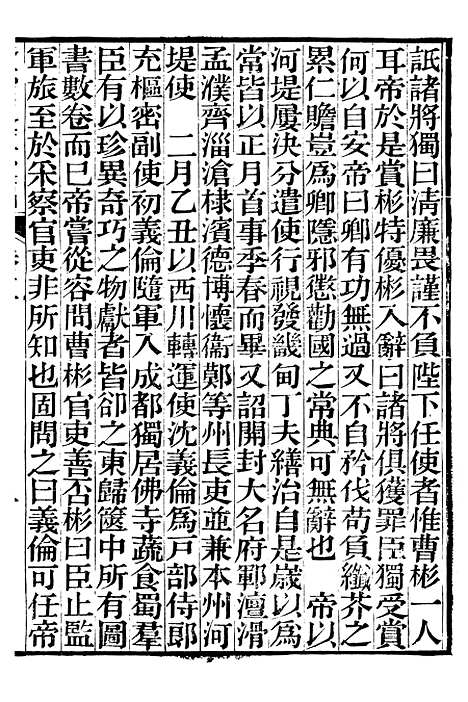 詆諸將獨曰清廉畏謹不負陛下任使者惟曹彬一人
耳帝於是賞彬特優彬入辭曰諸將俱獲罪臣獨受賞
何以自安帝曰卿有功無過又不自矜伐苟負纖芥之
累仁贍豈為卿隱邪懲勸國之常典可無辭也　帝以
河堤屢決分遣使行視發畿甸丁夫繕治自是歲以為
常皆以正月首事季春而畢又詔開封大名府鄆澶滑
孟濮齊淄滄棣濱德博懷衞鄭等州長吏並兼本州河
堤使　二月乙丑以西川轉運使沈義倫為戸部侍郎
充樞密副使初義倫隨軍入成都獨居佛寺蔬食蜀羣
臣有以珍異奇巧之物獻者皆卻之東歸篋中所有圖
書數卷而已帝嘗從容問曹彬官吏善否彬曰臣止監
軍旅至於采察官吏非所知也固問之曰義倫可任帝